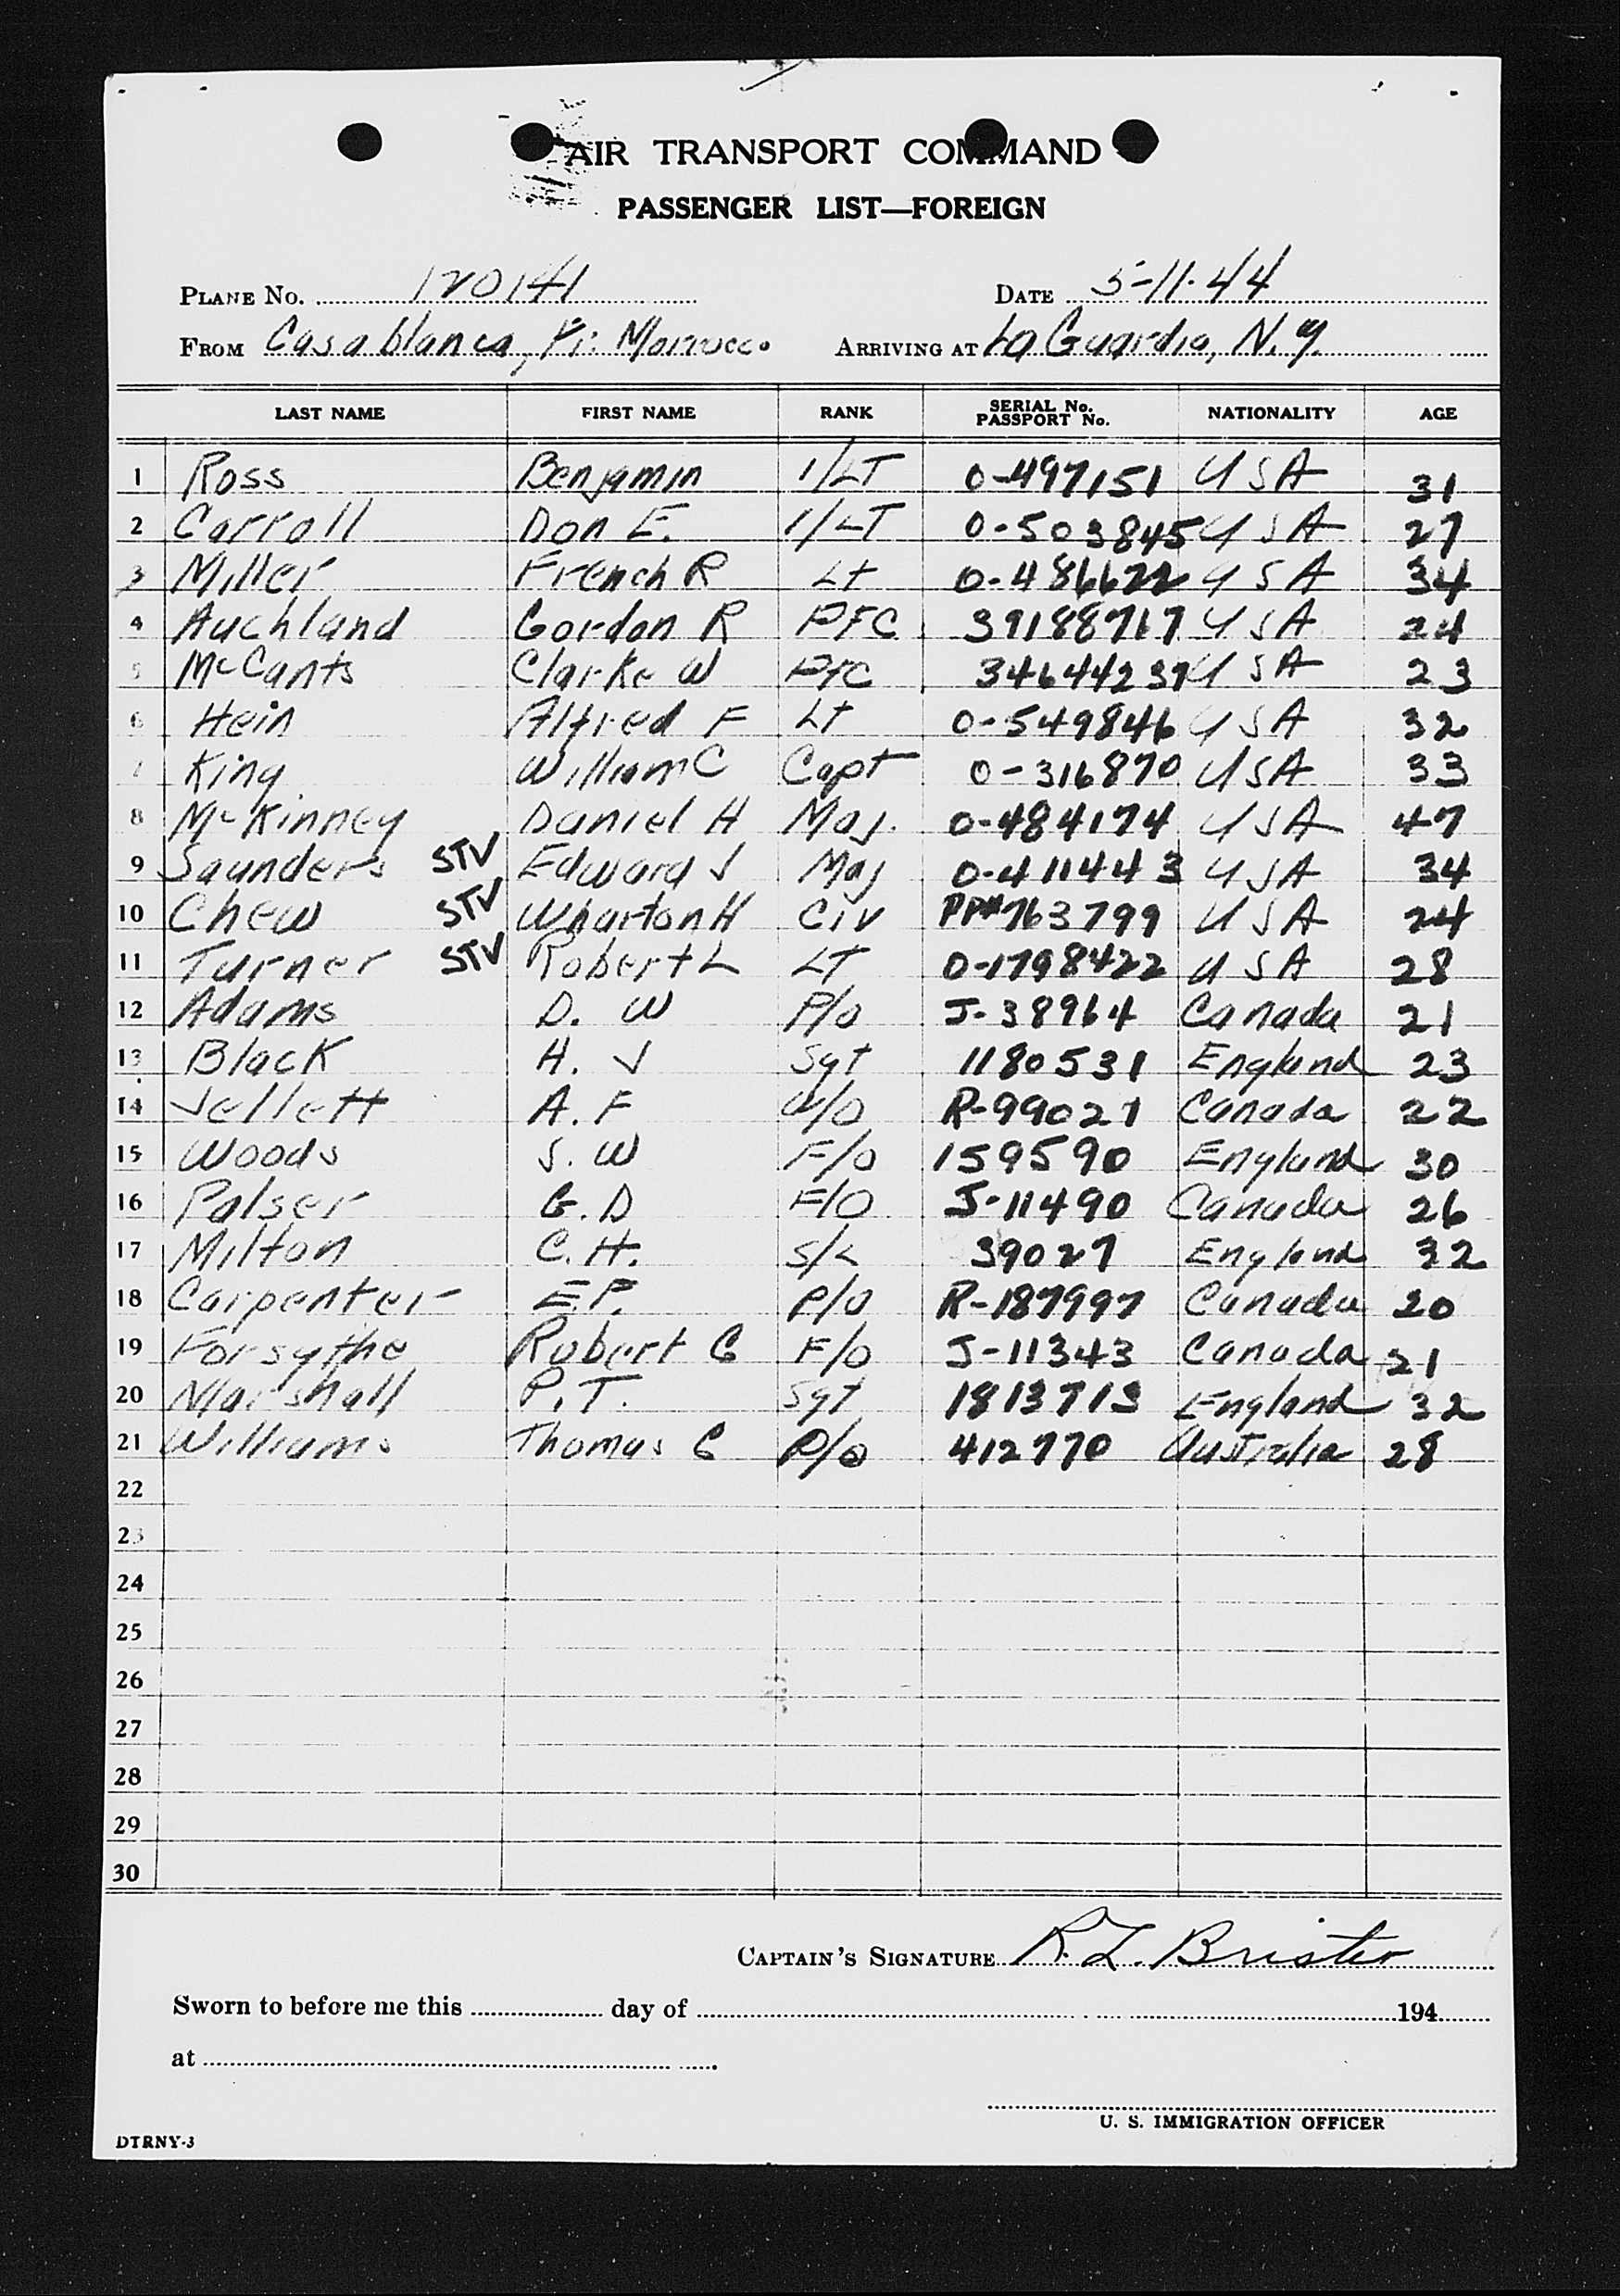 AIR TRANSPORT COMMAND
PASSENGER LIST—FOREIGN
PLANE NO. 120141 DATE 5-11-44
FROM Casablanca, Fr. Morrocco ARRIVING AT La Guardia, N.Y.
LAST NAME FIRST NAME RANK SERIAL No. PASSPORT No. NATIONALITY AGE
1 Ross Benjamin 1/LT 0-497151 USA 31
2 Carroll Don E. 1/LT 0-503845 USA 27
3 Miller French R Lt 0-486622 USA 34
4 Auchland Gordon R PFC 39188767 USA 24
5 McCants Clarke W Pfc 34644237 USA 23
6 Hein Alfred F Lt 0-549846 USA 32
7 King William C Capt 0-316870 USA 33
8 McKinney Daniel H Maj. 0-484174 USA 47
9 Saunders STV Edward J Maj 0-411443 USA 34
10 Chew STV Wharton H Civ PP#763799 USA 24
11 Turner STV Robert L LT 0-1798422 USA 28
12 Adams D. W P/o J-38964 Canada 21
13 Black H. J Sgt 1180531 England 23
14 Jellett A. F W/O R-99027 Canada 22
15 Woods S. W F/o 159590 England 30
16 Palser G. D F/O J-11490 Canada 26
17 Milton C. H. S/L 39027 England 32
18 Carpenter E.P. P/O R-187997 Canada 20
19 Forsythe Robert G F/o J-11343 Canada 21
20 Marshall P. T. Sgt 1813713 England 32
21 Williams Thomas G P/o 412770 Australia 28
22
23
24
25
26
27
28
29
30
CAPTAIN'S SIGNATURE R. L. Brister
Sworn to before me this day of 194
at
U. S. IMMIGRATION OFFICER
DTRNY-3